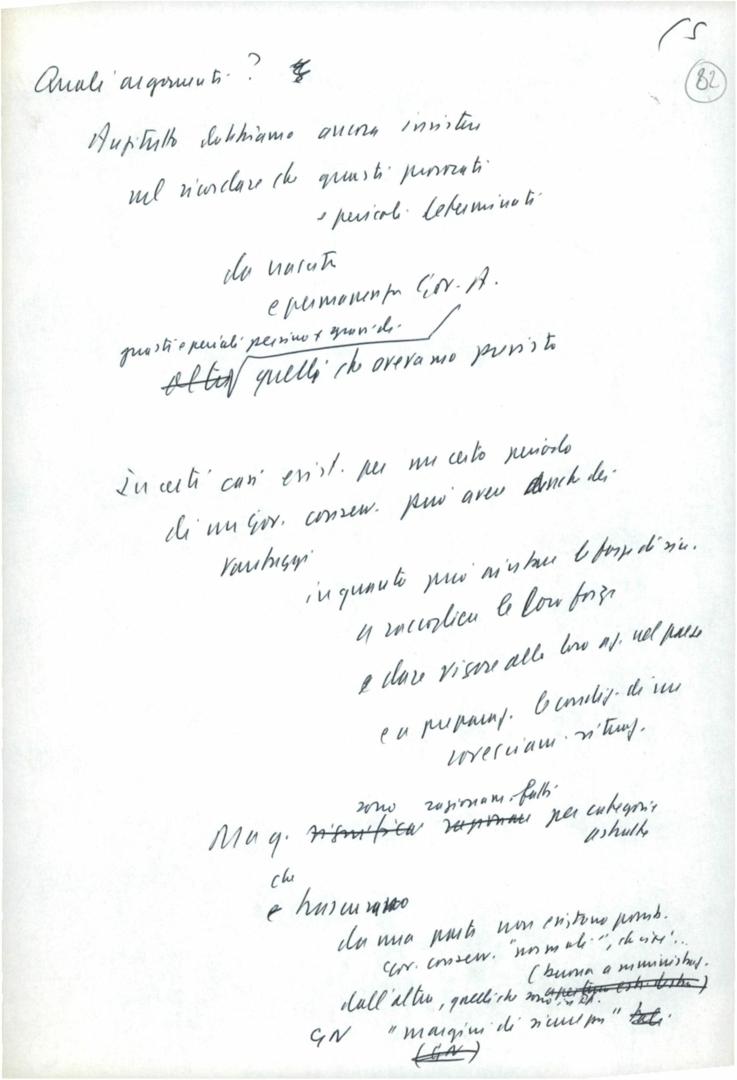 15
82
Quali argomenti?
Anzitutto dobbiamo ancora insistere
nel ricordare che guasti provocati
e pericoli determinati
da nascita
e permanenza Gov. A.
guasti e pericoli persino + gravi di
oltre quelli che avevamo previsto
In certi casi esist. per un certo periodo
di un Gov. conserv. può avere anche dei
vantaggi
in quanto può aiutare le forze di sin.
a raccogliere le loro forze
e dare vigore alla loro az. nel paese
e a preparaz. le condiz. di un
rovesciam. situaz.
sono ragionam. fatti
Ma q. significa ragionare per categorie
astratte
che
e trascurano
da una parte non esistono possib.
Gov. conserv. "normali", diciamo
(buona amministraz.
dall'altra, quelli che sono i
GN "margini di sicurezza"
(GN)